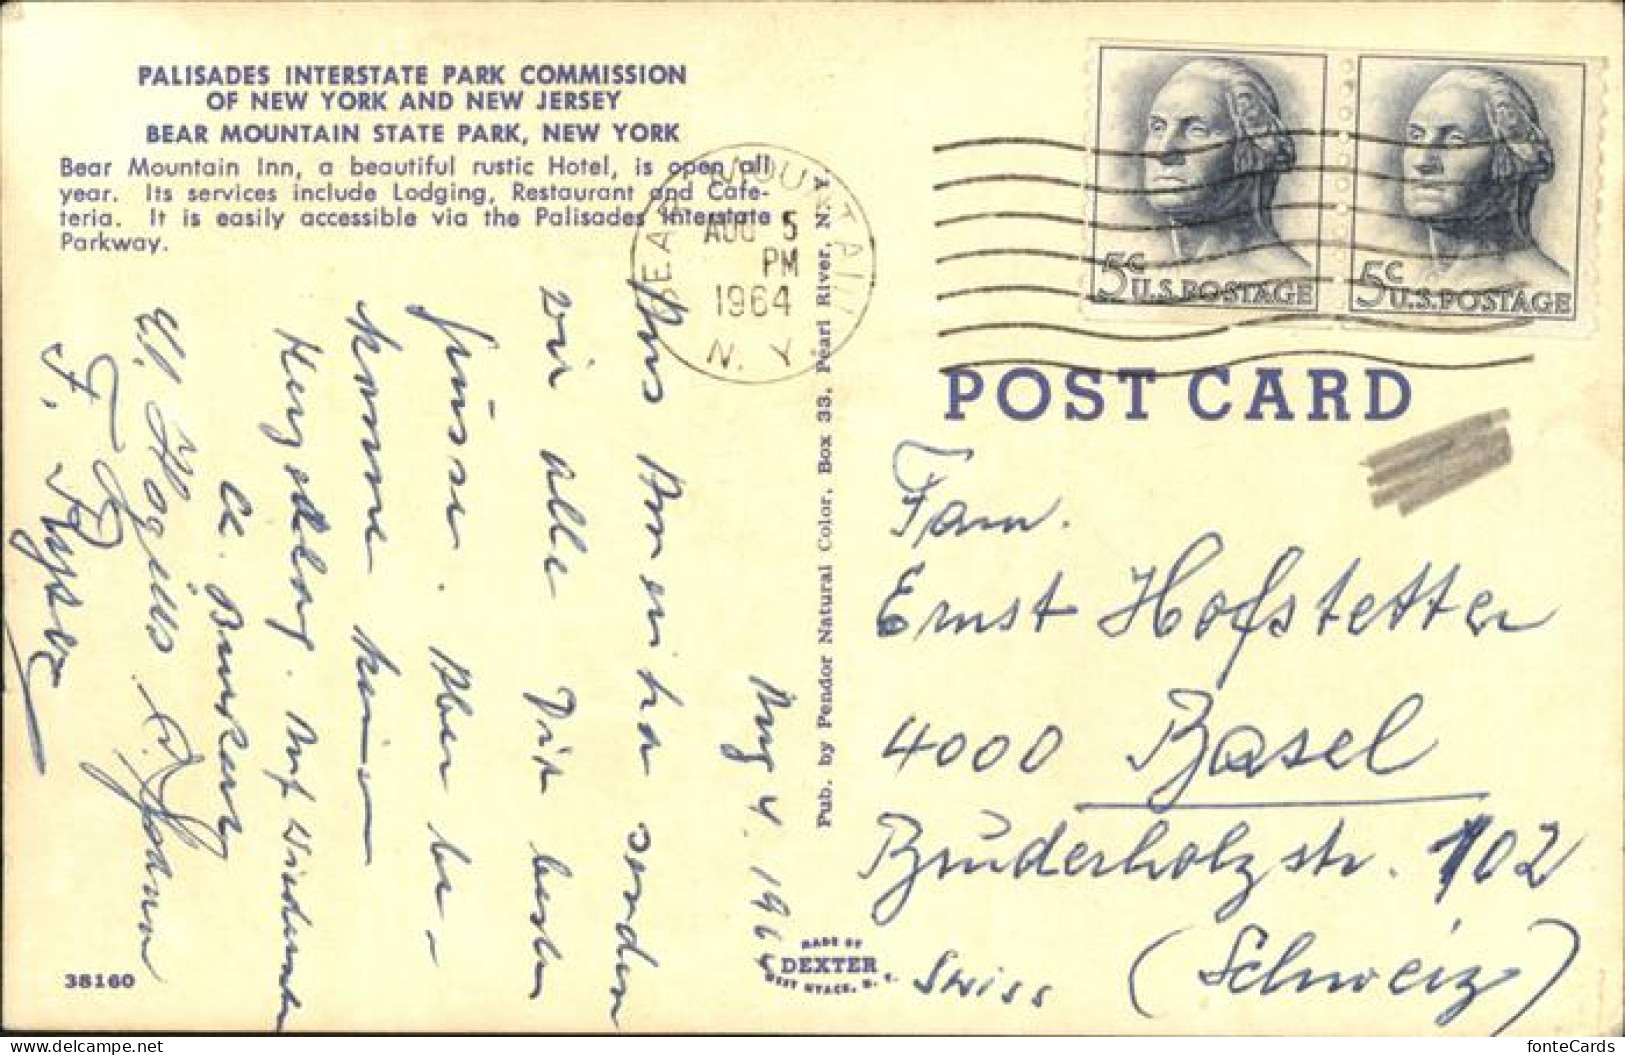 PALISADES INTERSTATE PARK COMMISSION
OF NEW YORK AND NEW JERSEY
BEAR MOUNTAIN STATE PARK, NEW YORK
Bear Mountain Inn, a beautiful rustic Hotel, is open all
year. Its services include Lodging, Restaurant and Cafe-
teria. It is easily accessible via the Palisades Interstate
Parkway.
BEAR MOUNTAIN
AUG 5
PM
1964
N. Y.
5c U.S. POSTAGE
5c U.S. POSTAGE
POST CARD
Aug 4. 1964
Aus Amerika senden
wir alle Dir besten
Grüsse. Aber be-
komme kein
Herzschlag. Auf Wiederseh
F. Ryser
Fam.
Ernst Hofstetter
4000 Basel
Bruderholzstr. 102
Swiss (Schweiz)
Pub. by Pendor Natural Color, Box 33, Pearl River, N. Y.
MADE BY
DEXTER
WEST NYACK, N. Y.
38160
fonteCards